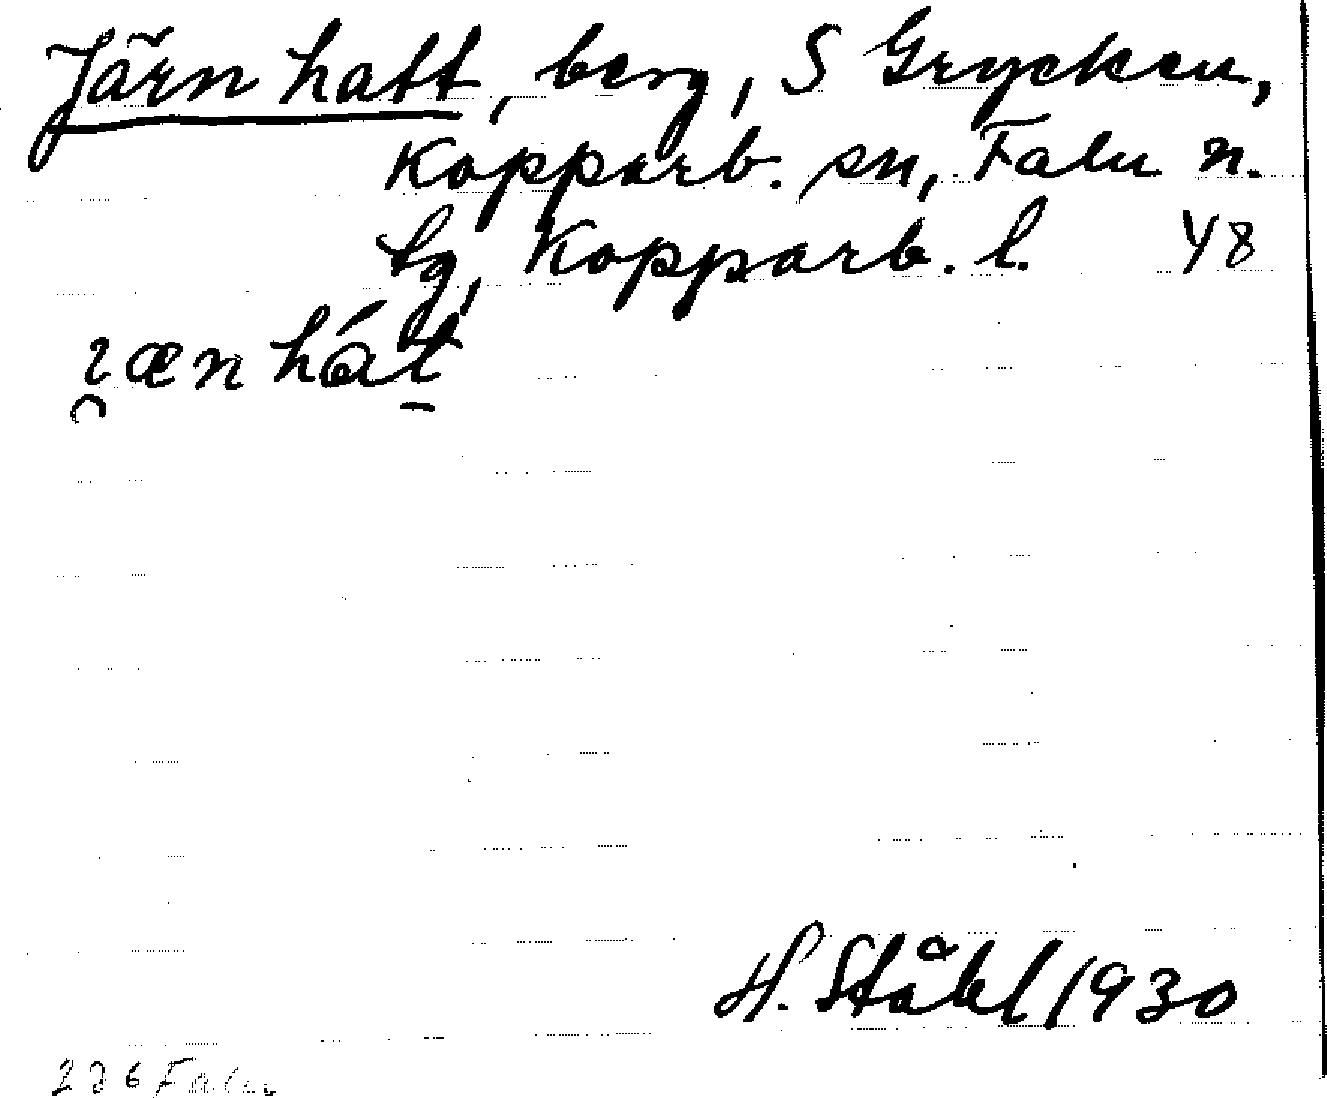 Järnhatt, berg, S Grycken,
Kopparb. sn, Falu n.
tg, Kopparb. l. Y8
H. Ståhl 1930
226 Falu